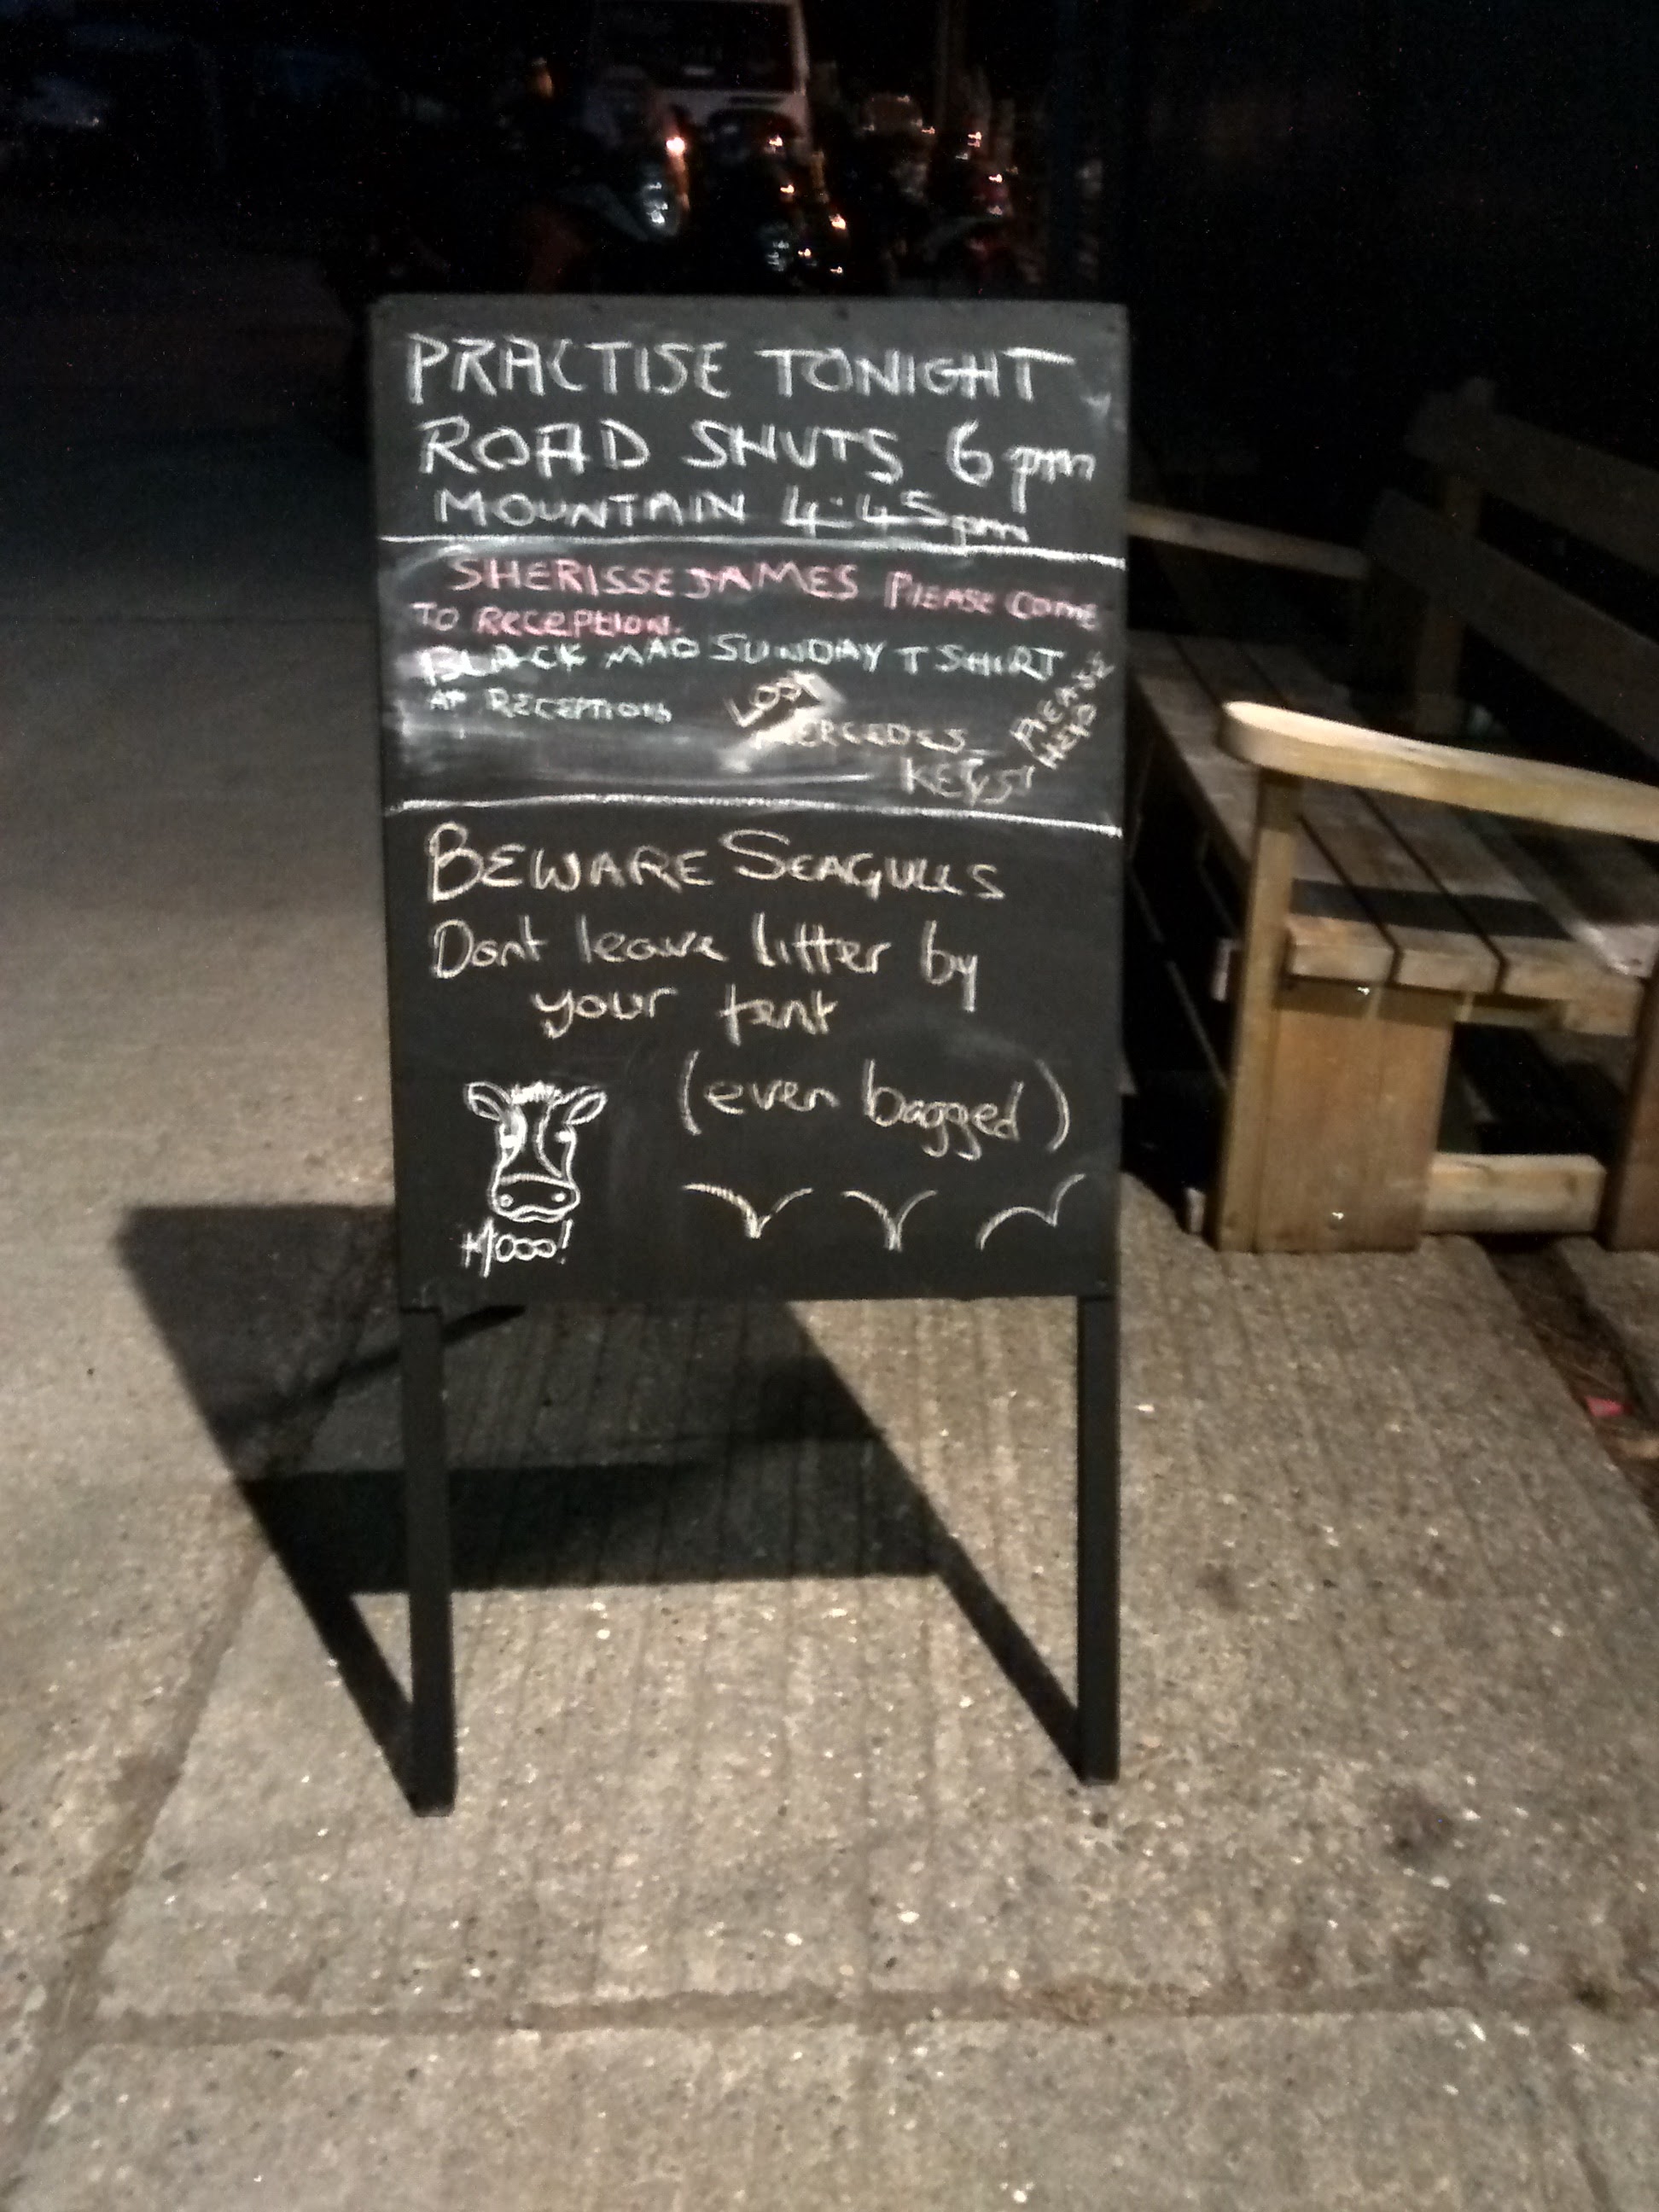 PRACTISE TONIGHT
ROAD SHUTS 6pm
MOUNTAIN 4:45pm
SHERISSE JAMES PLEASE COME
TO RECEPTION.
BLACK MAD SUNDAY T SHIRT
AT RECEPTION
LOST
MERCEDES
KEYS!
PLEASE
HELP
BEWARE SEAGULLS
Dont leave litter by
your tent
(even bagged)
Mooo!